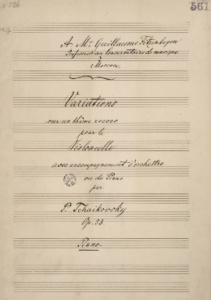 561
A Mr. Guillaume Fitzenhagen
Professeur au Conservatoire de musique
à Moscou.
Variations
sur un thème rococo
pour le
Violoncelle
avec accompagnement d'orchestre
ou de Piano
par
P. Tchaïkovsky
Op. 33.
Piano.